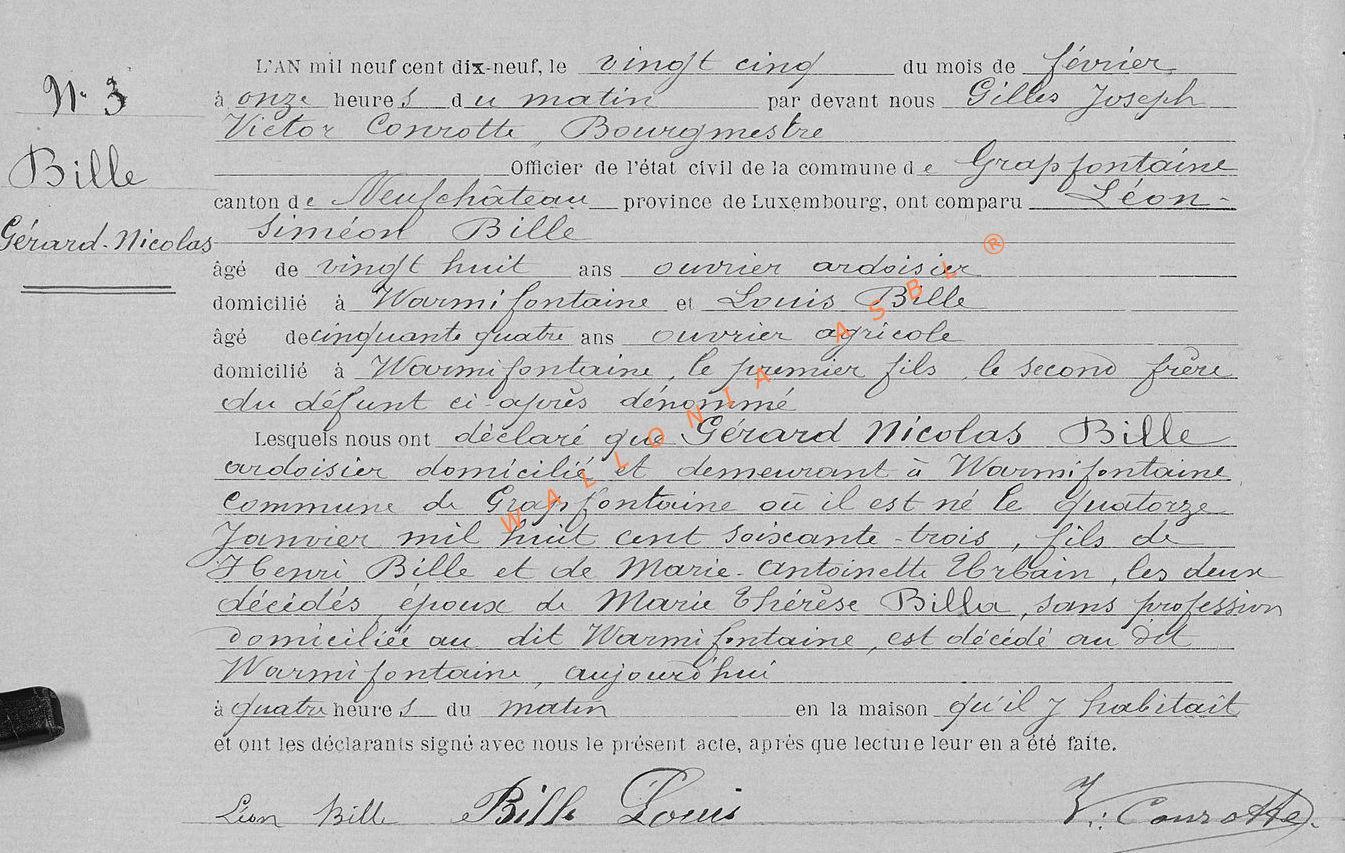 L'AN mil neuf cent dix-neuf, le vingt cinq du mois de février
N° 3
à onze heures du matin par devant nous Gilles Joseph
Victor Conrotte, Bourgmestre
Bille
Officier de l'état civil de la commune de Grapfontaine
canton de Neufchâteau province de Luxembourg, ont comparu Léon-
Gérard-Nicolas
Siméon Bille
âgé de vingt huit ans ouvrier ardoisier
domicilié à Warmifontaine et Louis Bille
âgé de cinquante quatre ans ouvrier agricole
domicilié à Warmifontaine, le premier fils, le second frère
du défunt ci-après dénommé
Lesquels nous ont déclaré que Gérard Nicolas Bille
ardoisier domicilié et demeurant à Warmifontaine
commune de Grapfontaine où il est né le quatorze
Janvier mil huit cent soixante-trois, fils de
Henri Bille et de Marie-Antoinette Urbain, les deux
décédés, époux de Marie Thérèse Billa, sans profession
domiciliée au dit Warmifontaine, est décédé au dit
Warmifontaine, aujourd'hui
à quatre heures du matin en la maison qu'il y habitait
et ont les déclarants signé avec nous le présent acte, après que lecture leur en a été faite.
Léon Bille Bille Louis V. Conrotte.
WALLONIA ASBL ®